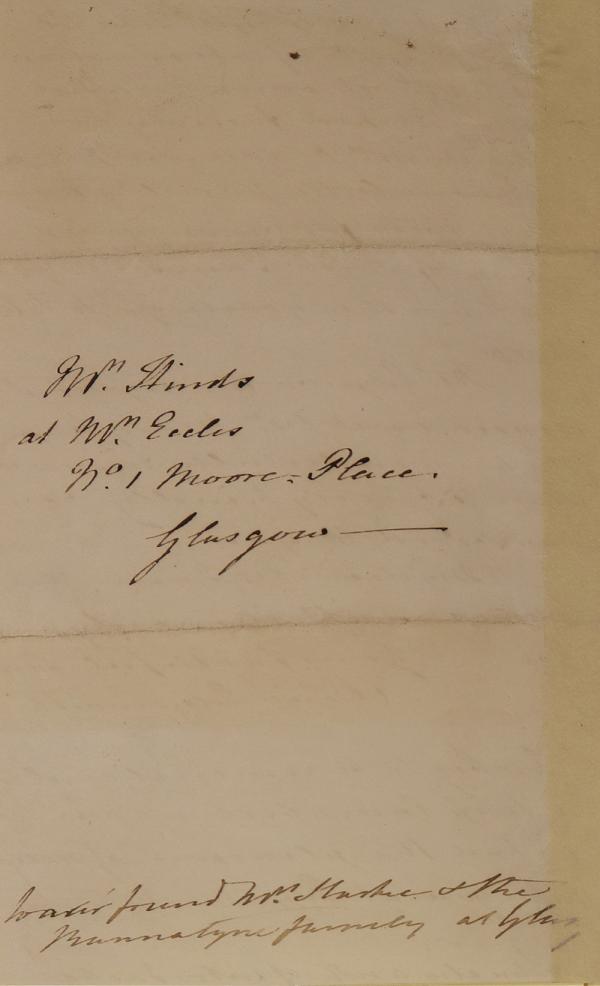 Mrs. Hinds
at Mrs. Eccles
No. 1 Moore-Place.
Glasgow
friend Mrs. & the
Bannatyne family at Glas